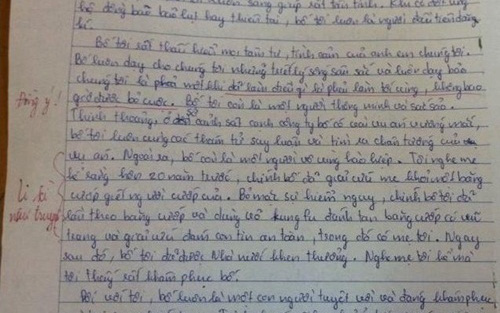 luôn sẵn sàng giúp rất tận tình. Khi có đợt ủng
hộ đồng bào bão lụt hay thiên tai, bố tôi luôn là người đầu tiên đóng
Bố tôi rất thấu hiểu mọi tâm tư, tình cảm của anh em chúng tôi.
Bố luôn dạy cho chúng tôi những triết lý sống sâu sắc và luôn dạy bảo
chúng tôi là phải một khi đã làm điều gì là phải làm tới cùng, không bao
giờ được bỏ cuộc. Bố tôi còn là một người thông minh và sắc sảo.
Đồng ý!
Thỉnh thoảng, ở đồn cảnh sát cạnh công ty bố có vài vụ án vướng mắc,
bố tôi luôn cùng các thám tử suy luận và tìm ra chân tướng của
vụ án. Ngoài ra, bố còn là một người vô cùng hào hiệp. Tôi nghe mẹ
kể rằng hơn 20 năm trước, chính bố đã giải cứu mẹ khỏi một băng
Li kì
như truyện
cướp giết người cướp của. Bỏ mặc sự hiểm nguy, chính bố tôi đã
lần theo băng cướp và dùng võ kungfu đánh tan băng cướp có vũ
trang và giải cứu đám con tin an toàn, trong đó có mẹ tôi. Ngay
sau đó, bố tôi đã được Nhà nước khen thưởng. Nghe mẹ tôi kể mà
tôi thấy rất khâm phục bố.
Đối với tôi, bố luôn là một con người tuyệt vời và đáng khâm phục